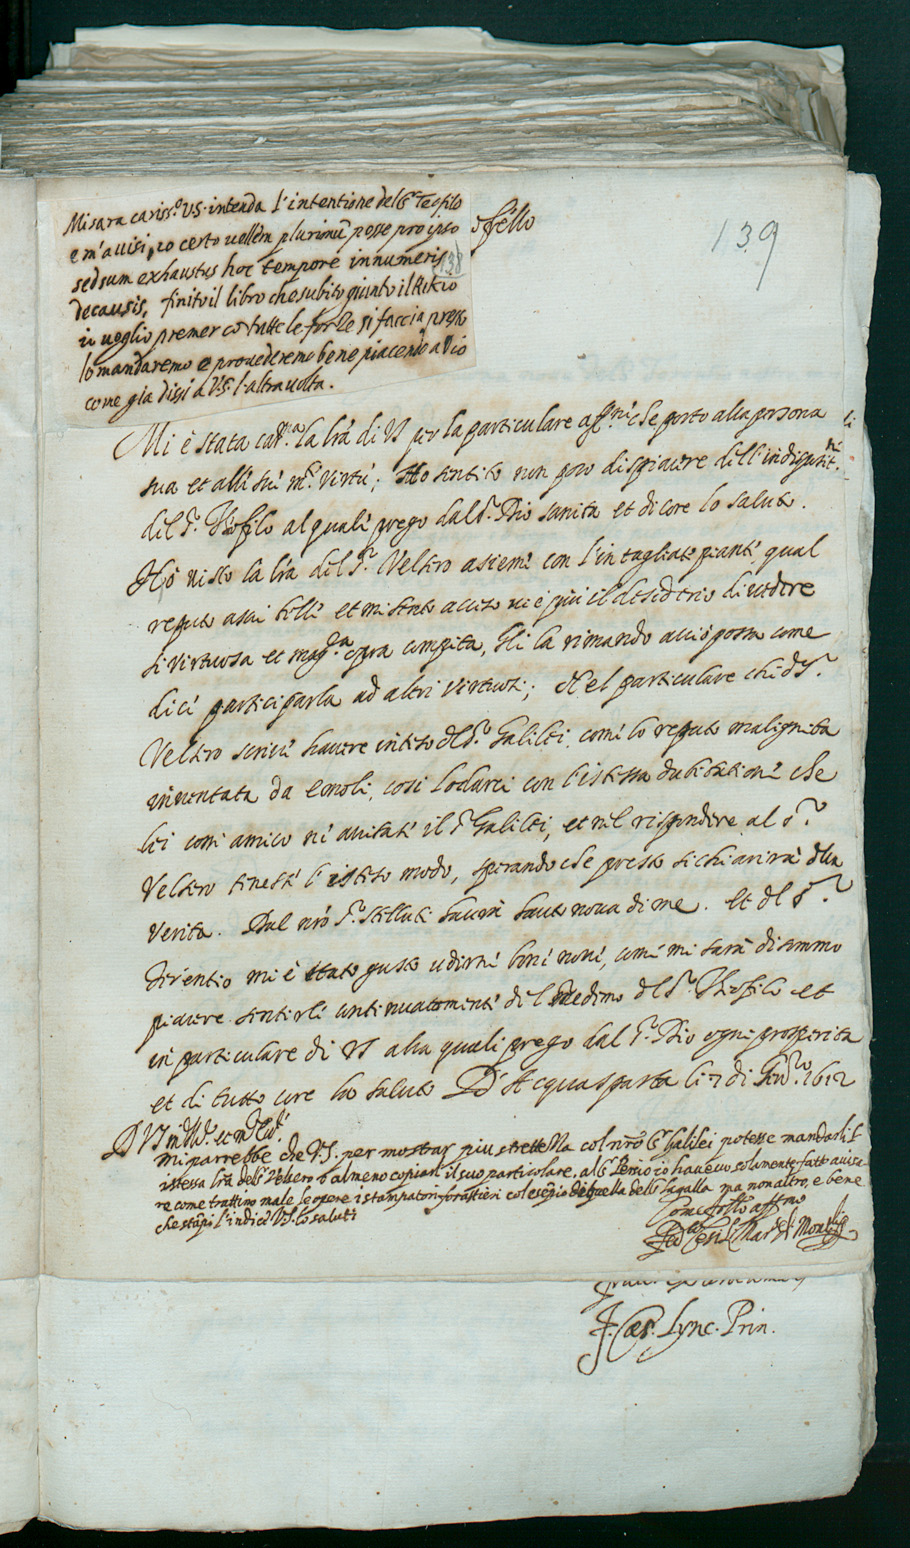 Mi sara cariss.º V.S. intenda l'intentione del S.r Teofilo
e m'avvisi, io certo vellem plurimū posse pro ipso
sed sum exhaustus hoc tempore innumeris
de causis, finito il libro che subito giunto il
io voglio premer cō tutte le forze si faccia presto
lo mandaremo e provederemo bene piacendo a Dio
come gia dissi a V.S. l'altra volta.
offilo
138
139
Mi è stata car.ma la lr̃a di VS per la particulare aff.ne che porto alla persona
sua et alle sue virtù; Ho sentito non poco dispiacere dell'indisposit.ne
del S.r Theofilo al quale prego dal S.r Dio sanita et di core lo saluto.
Ho visto la lr̃a del S.r Velsero asieme con l'intagliate piante qual
reputo assai belle et mi sento acceso vie più il desiderio di vedere
si virtuosa et mag.ca opra compita, Gli la rimando accio possa come
dici participarla ad altri virtuosi; Nel particulare che 'l S.r
Velsero scrive havere inteso del S.r Galilei, come lo reputo malignita
inventata da emoli, cosi lodarei con l'istessa dubitatione che
lei come amico ne avvisate il S.r Galilei, et nel rispondere al S.r
Velsero tenesse l'istesso modo, sperando che presto si chiarirà della
verita. Dal nr̃o S.r Stelluti haurà hauto nova di me. et del S.r
Terentio mi è stato gusto udirne bone nove, come mi sarà di sommo
piacere sentirle continuatamente del medemo del S.r Theofilo et
in particulare di VS alla quale prego dal S.r Dio ogni prosperita
et di tutto core la saluto D'Acquasparta li 7 di 1612
D VS
Mi parrebbe che V.S. per mostrar piu strettezza col nr̃o S.r Galilei potesse mandarli l'
istessa lr̃a del S.r Velsero o almeno copiarli il suo particolare, al S.r io havevo solamente fatto avisa
re come trattino male le opere i stampatori forastieri col esēpio di quella del S.r Lagalla ma non altro, e bene
che stāpi l'indice V.S. lo saluti
Come fr̃ello aff.mo
Fed.co Cesi L. Mar. di Monticelli
F. Cæs. Lync. Prin.